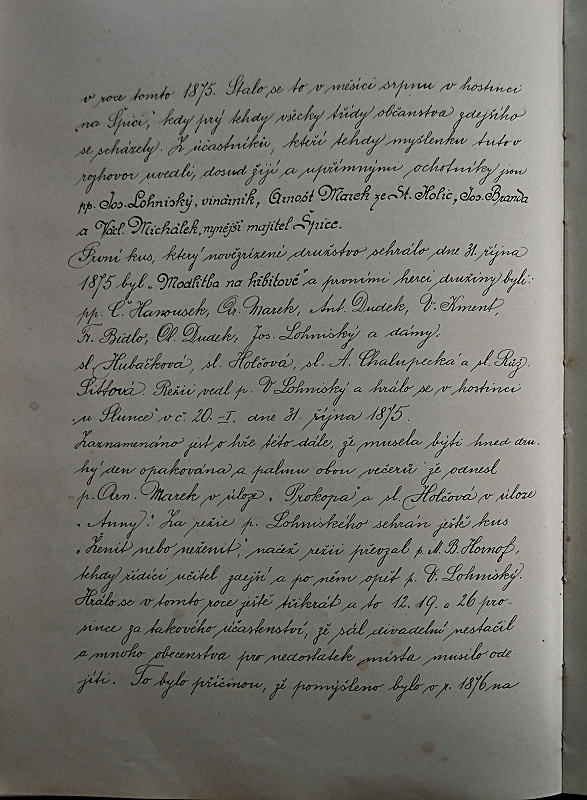 v roce tomto 1875. Stalo se to v měsíci srpnu v hostinci
na Špici, kdy prý tehdy všecky třídy občanstva zdejšího
se scházely. Z účastníků, kteří tehdy myšlenku tuto v
rozhovor uvedli, dosud žijí a upřímnými ochotníky jsou
pp. Jos. Lohniský, vinárník, Arnošt Marek ze St. Kolic, Jos. Branda
a Václ. Michálek, nynější majitel Špice.
První kus, který novězřízené družstvo sehrálo dne 31. října
1875 byl „Modlitba na hřbitově" a prvními herci družiny byli:
pp. Č. Hanousek, Ar. Marek, Ant. Dudek, V. Kment,
Fr. Bidlo, Ol. Dudek, Jos. Lohniský a dámy:
sl. Hubačková, sl. Holčová, sl. A. Chalupecká a sl. Růž.
Sittová. Režii vedl p. V. Lohniský a hrálo se v hostinci
„u Slunce" v č. 20.-I. dne 31. října 1875.
Zaznamenáno jest o hře této dále, že musela býti hned dru-
hý den opakována a palmu obou večerů že odnesl
p. Arn. Marek v úloze „Prokopa" a sl. Holčová v úloze
„Anny". Za režie p. Lohniského sehrán ještě kus
„Ženit nebo neženit", načež režii převzal p. M. B. Hornof,
tehdy řídící učitel zdejší a po něm opět p. V. Lohniský.
Hrálo se v tomto roce ještě třikrát a to 12. 19. a 26 pro-
since za takového účastenství, že sál divadelní nestačil
a mnoho obecenstva pro nedostatek místa musilo ode-
jíti. To bylo příčinou, že pomýšleno bylo v r. 1876 na